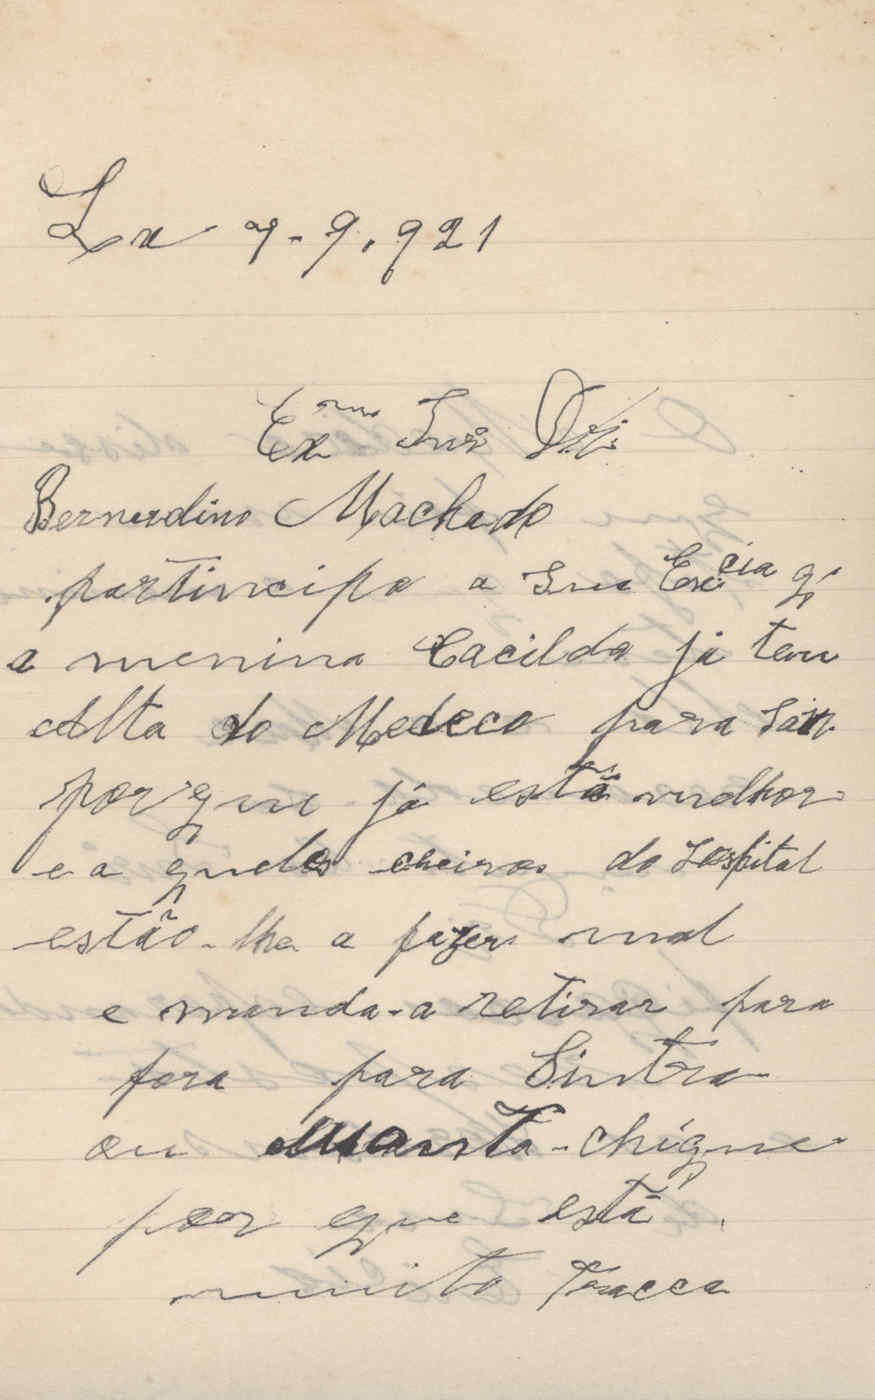 Lx 7-9,921
Exmo Snr Dr.
Bernardino Machado
partincipo a Sua Excia q
a menina Cacilda já tem
Alta do Medeco para
porque já está milhor
e a queles cheiros do Hospital
estão-lhe a fazer mal
e manda-a retirar para
fora para Sintra
ou Manta-chique
por que está
muito Fracca